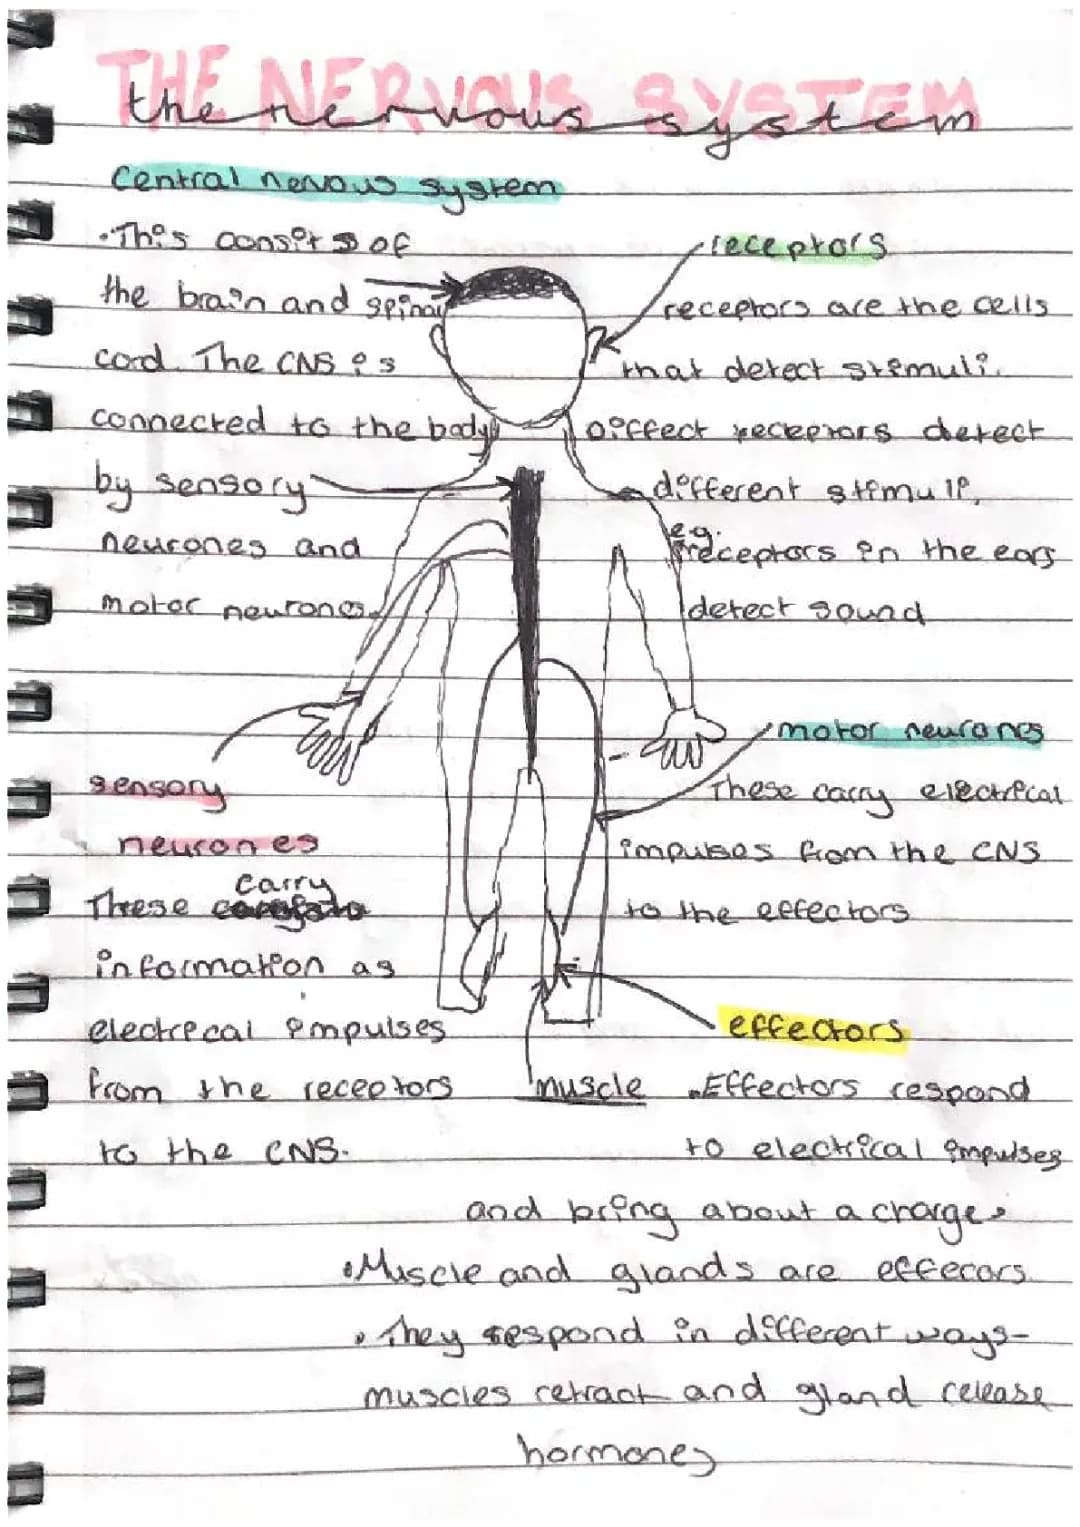 THE NERVOUS SYSTEM
the nervous system
Central nervous system
• This consits of
the brain and spinal
cord. The CNS is
connected to the body
by sensory
neurones and
motor neurones
receptors
receptors are the cells
that detect stimuli.
Diffect receptors detect
different stimuli,
e.g.
receptors in the ears
detect sound
sensory
neurones
carry
These
information as
electrical impulses
from the receptors
to the CNS.
motor neurones
These carry electrical
impulses from the CNS
to the effectors
effectors
muscle
• Effectors respond
to electrical impulses
and bring about a charge.
• Muscle and glands are effecors.
• They respond in different ways-
muscles retract and gland release
hormones